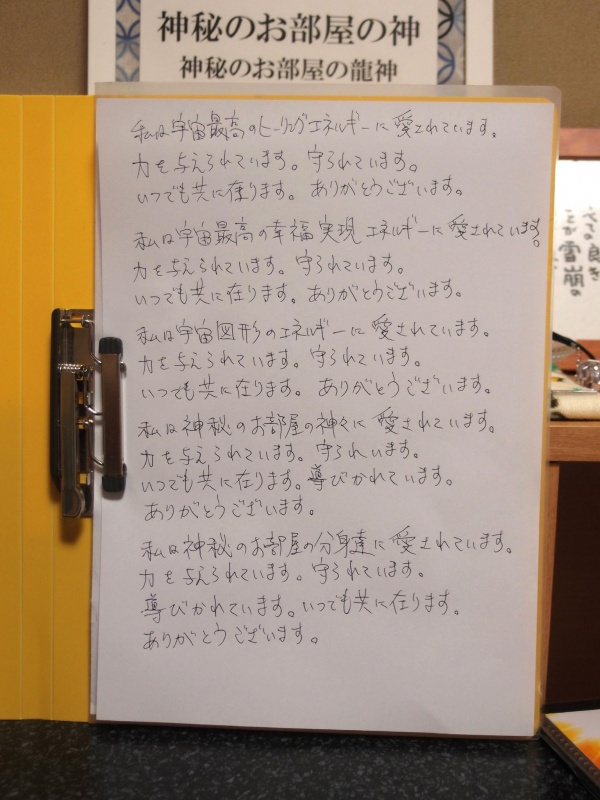 神秘のお部屋の神
神秘のお部屋の龍神
私は宇宙最高のヒーリングエネルギーに愛されています。
力を与えられています。守られています。
いつでも共に在ります。ありがとうございます。
私は宇宙最高の幸福実現エネルギーに愛されています。
力を与えられています。守られています。
いつでも共に在ります。ありがとうございます。
私は宇宙図形のエネルギーに愛されています。
力を与えられています。守られています。
いつでも共に在ります。ありがとうございます。
私は神秘のお部屋の神々に愛されています。
力を与えられています。守られいます。
いつでも共に在ります。導びかれています。
ありがとうございます。
私は神秘のお部屋の分身達に愛されています。
力を与えられています。守られています。
導びかれています。いつでも共に在ります。
ありがとうございます。
べての良き
ことが雪崩の